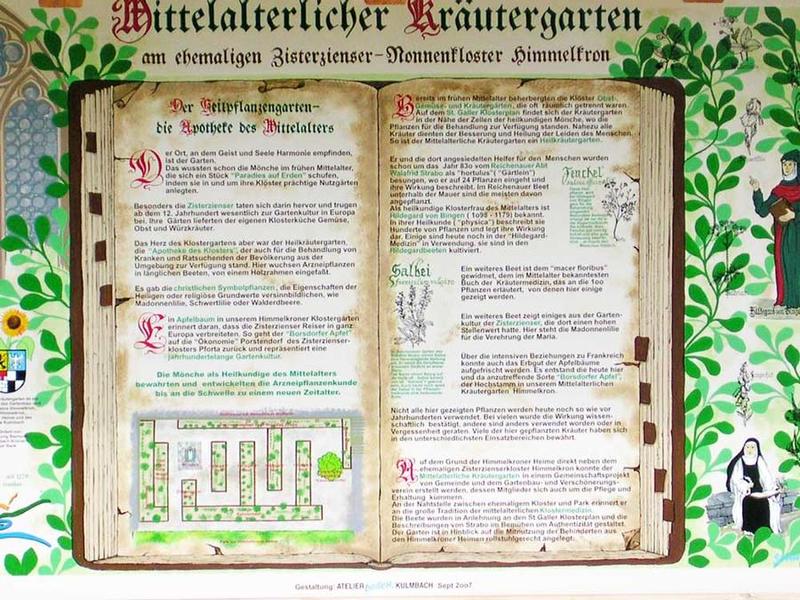 Mittelalterlicher Kräutergarten
am ehemaligen Zisterzienser-Nonnenkloster Himmelkron
Der Heilpflanzengarten-
die Apotheke des Mittelalters
Der Ort, an dem Geist und Seele Harmonie empfinden,
ist der Garten.
Das wussten schon die Mönche im frühen Mittelalter,
die sich ein Stück "Paradies auf Erden" schufen,
indem sie in und um ihre Klöster prächtige Nutzgärten
anlegten.
Besonders die Zisterzienser taten sich darin hervor und trugen
ab dem 12. Jahrhundert wesentlich zur Gartenkultur in Europa
bei. Ihre Gärten lieferten der eigenen Klosterküche Gemüse,
Obst und Würzkräuter.
Das Herz des Klostergarten aber war der Heilkräutergarten,
die "Apotheke des Klosters", der auch für die Behandlung von
Kranken und Ratsuchenden der Bevölkerung aus der
Umgebung zur Verfügung stand. Hier wuchsen Arzneipflanzen
in länglichen Beeten, von einem Holzrahmen eingefaßt.
Es gab die christlichen Symbolpflanzen, die Eigenschaften der
Heiligen oder religiöse Grundwerte versinnbildlichen, wie
Madonnenlilie, Schwertlilie oder Walderdbeere.
Ein Apfelbaum in unserem Himmelkroner Klostergärten
erinnert daran, dass die Zisterzienser Reiser in ganz
Europa verbreiteten. So geht der "Borsdorfer Apfel"
auf die "Ökonomie" Porstendorf des Zisterzienser-
klosters Pforta zurück und repräsentiert eine
jahrhundertelange Gartenkultur.
Die Mönche als Heilkundige des Mittelalters
bewahrten und entwickelten die Arzneipflanzenkunde
bis an die Schwelle zu einem neuen Zeitalter.
Bereits im frühen Mittelalter beherbergten die Klöster Obst-
Gemüse- und Kräutergärten, die oft räumlich getrennt waren.
Auf dem St. Galler Klosterplan findet sich der Kräutergarten
in der Nähe der Zellen der heilkundigen Mönche, wo die
Pflanzen für die Behandlung zur Verfügung standen. Nahezu alle
Kräuter dienten der Besserung und Heilung der Leiden des Menschen.
So ist der Mittelalterliche Kräutergarten ein Heilkräutergarten.
Er und die dort angesiedelten Helfer für den Menschen wurden
schon um das Jahr 830 vom Reichenauer Abt
Walafrid Strabo als "hortulus" ("Gärtlein")
besungen, wo er auf 24 Pflanzen eingeht und
ihre Wirkung beschreibt. Im Reichenauer Beet
unterhalb der Mauer sind die meisten davon
angepflanzt.
Als heilkundige Klosterfrau des Mittelalters ist
Hildegard von Bingen (1098 - 1179) bekannt.
In ihrer Heilkunde ("physica") beschreibt sie
Hunderte von Pflanzen und legt ihre Wirkung
dar. Einige sind heute noch in der "Hildegard-
Medizin" in Verwendung. sie sind in den
Hildegardbeeten kultiviert.
Fenchel
Salbei
Ein weiteres Beet ist dem "macer floribus"
gewidmet, dem im Mittelalter bekanntesten
Buch der Kräutermedizin, das an die 100
Pflanzen erläutert, von denen hier einige
gezeigt werden.
Ein weiteres Beet zeigt einiges aus der Garten-
kultur der Zisterzienser, die dort einen hohen
Stellenwert hatte. Hier steht die Madonnenlilie
für die Verehrung der Maria.
Über die intensiven Beziehungen zu Frankreich
konnte auch das Erbgut der Apfelbäume
aufgefrischt werden. Es entstand die heute hier
und da anzutreffende Sorte "Borsdorfer Apfel",
der Hochstamm in unserem Mittelalterlichen
Kräutergarten Himmelkron.
Nicht alle hier gezeigten Pflanzen werden heute noch so wie vor
Jahrhunderten verwendet. Bei vielen wurde die Wirkung wissen-
schaftlich bestätigt, andere sind anders verwendet worden oder in
Vergessenheit geraten. Viele der hier gepflanzten Kräuter haben sich
in den unterschiedlichsten Einsatzbereichen bewährt.
Auf dem Grund der Himmelkroner Heime direkt neben dem
ehemaligen Zisterzienserkloster Himmelkron konnte der
Mittelalterliche Kräutergarten in einem Gemeinschaftsprojekt
von Gemeinde und dem Gartenbau- und Verschönerungs-
verein erstellt werden, dessen Mitglieder sich auch um die Pflege und
Erhaltung kümmern
An der Nahtstelle zwischen ehemaligem Kloster und Park erinnert er
an die große Tradition der mittelalterlichen Klostermedizin.
Die Beete wurden in Anlehnung an den St Galler Klosterplan und die
Beschreibungen von Strabo im Bemühen um Authentizität gestaltet.
Der Garten ist in Hinblick auf die Mitnutzung der Behinderten aus
den Himmelkroner Heimen rollstuhlgerecht angelegt.
Hildegard von Bingen
Gestaltung: ATELIER KULMBACH Sept 2007